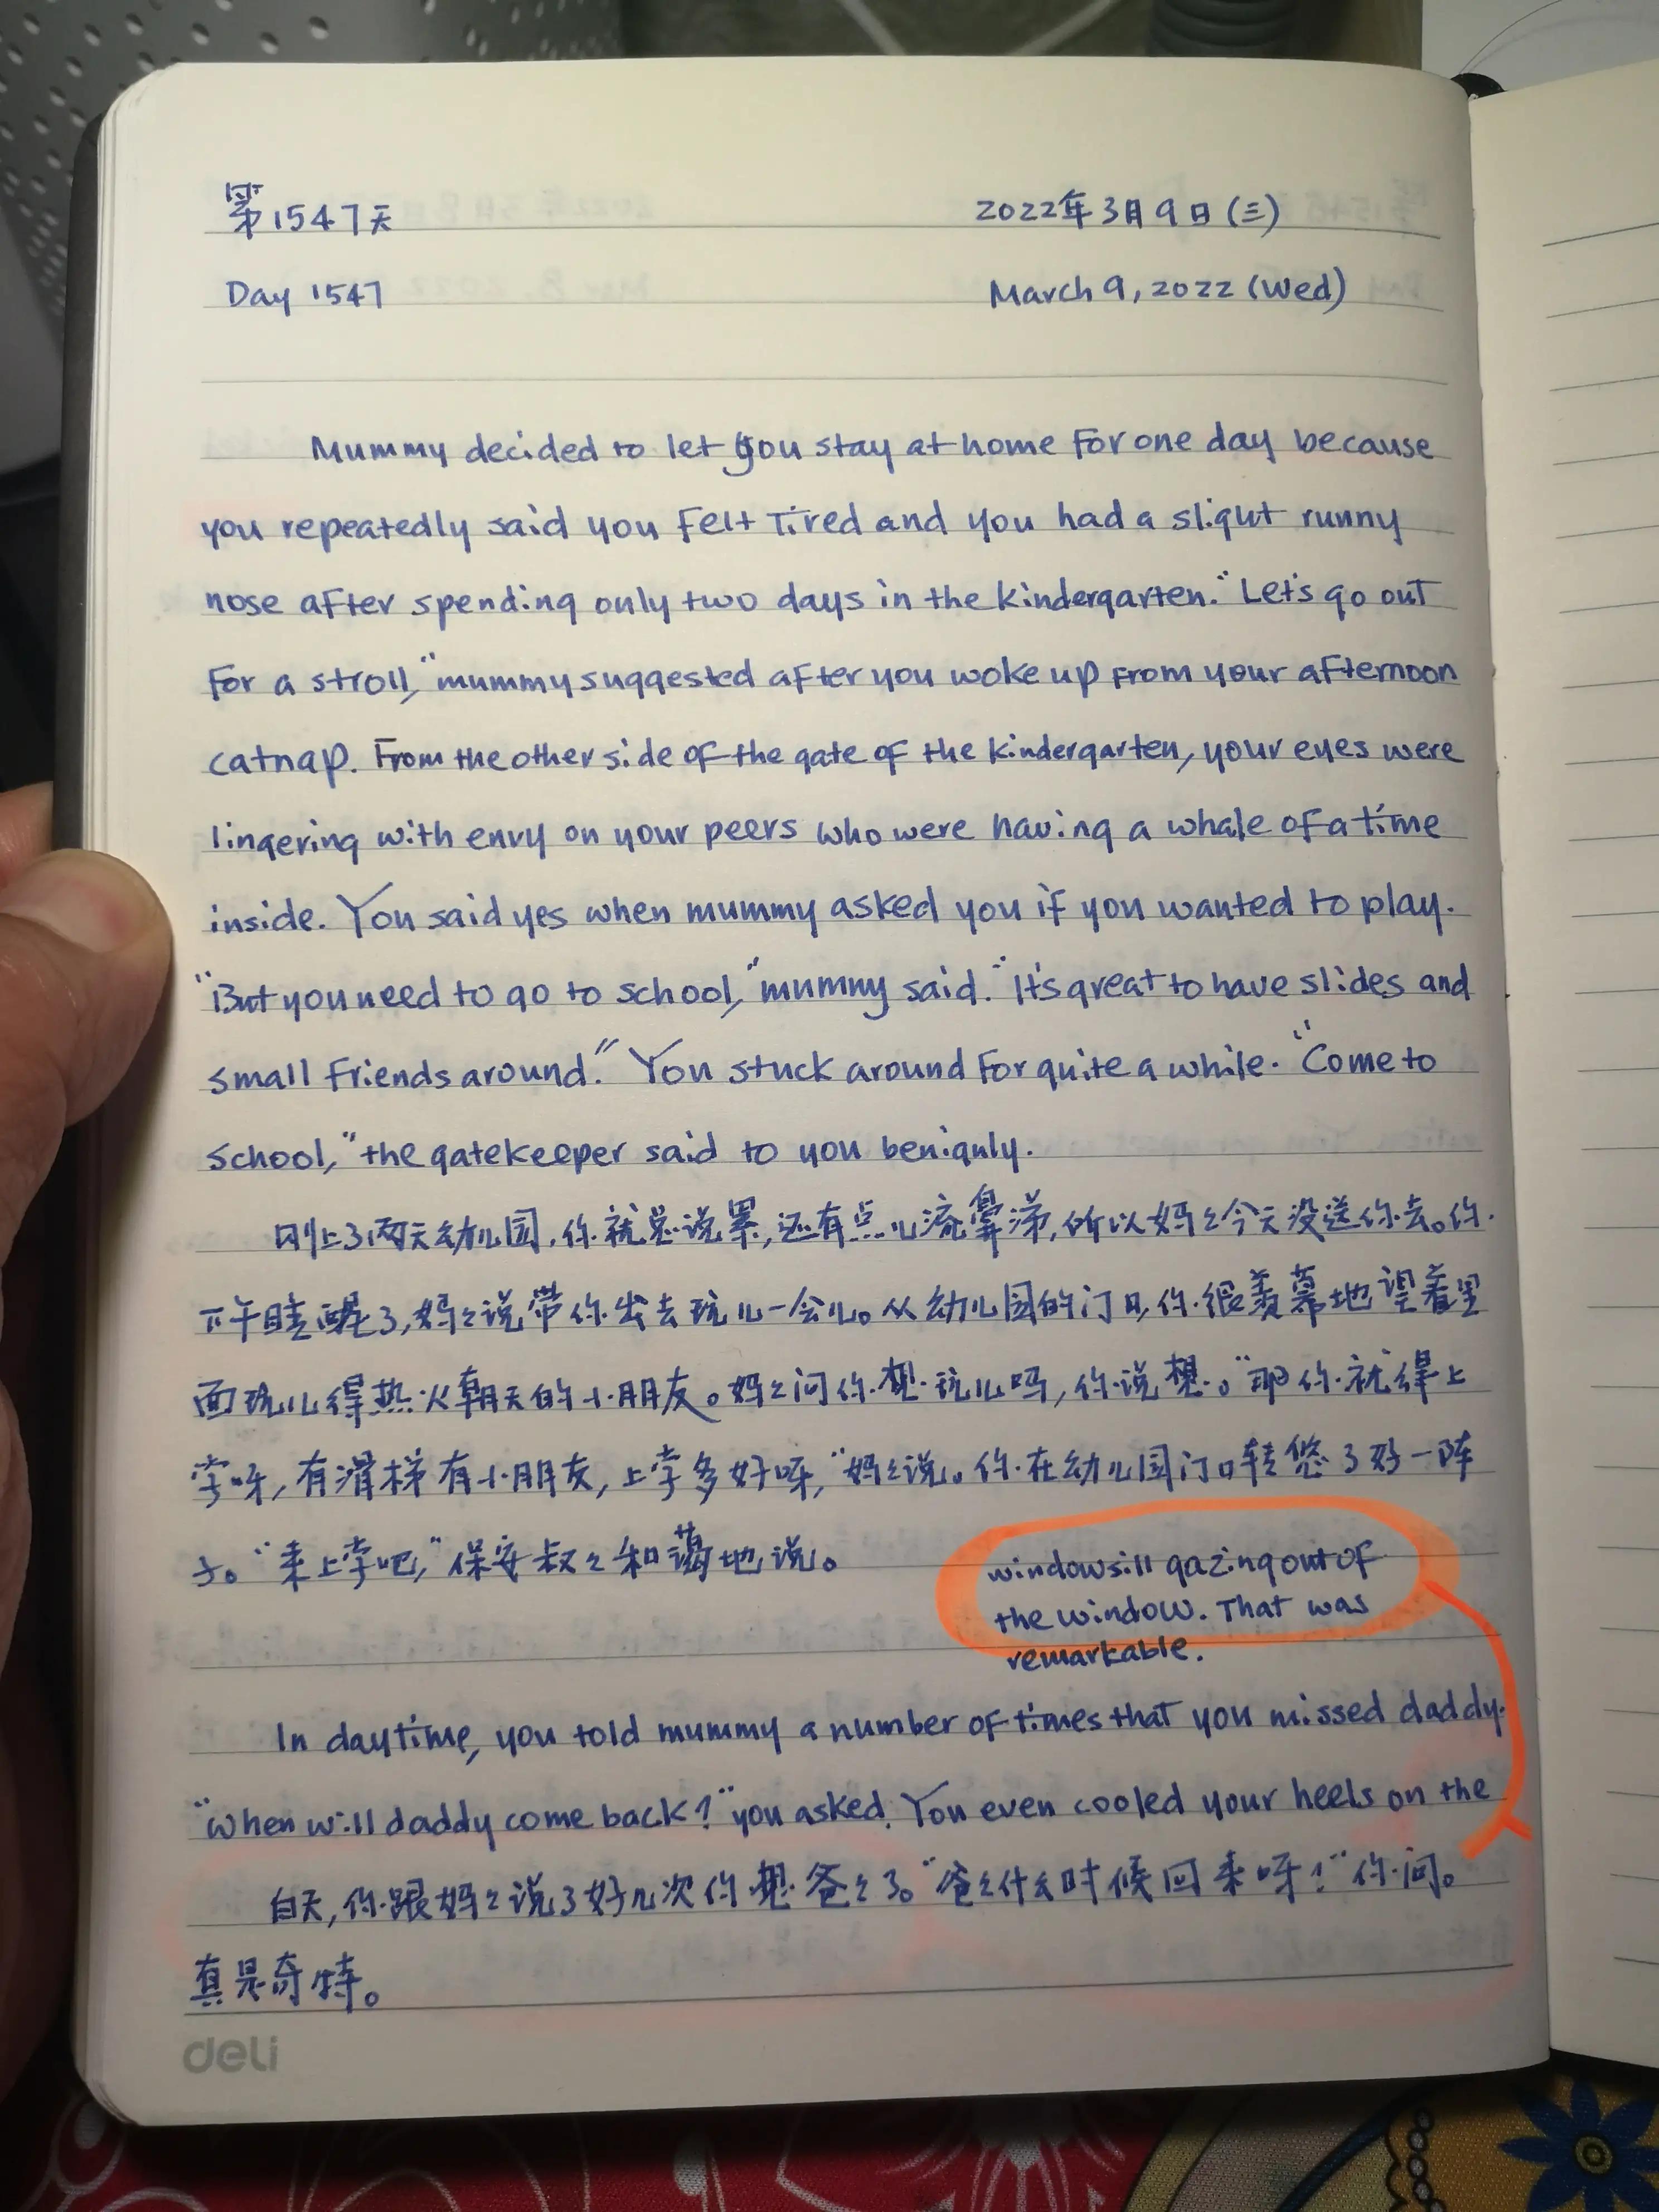 第1547天 2022年3月9日(三)
Day 1547 March 9, 2022 (Wed)
Mummy decided to let you stay at home for one day because
you repeatedly said you felt tired and you had a slight runny
nose after spending only two days in the kindergarten. "Let's go out
for a stroll," mummy suggested after you woke up from your afternoon
catnap. From the other side of the gate of the kindergarten, your eyes were
lingering with envy on your peers who were having a whale of a time
inside. You said yes when mummy asked you if you wanted to play.
"But you need to go to school," mummy said. "It's great to have slides and
small friends around." You stuck around for quite a while. "Come to
school," the gatekeeper said to you benignly.
刚上了两天幼儿园,你就总说累,还有点儿流鼻涕,所以妈々今天没送你去。你
下午睡醒了,妈々说带你出去玩儿一会儿。从幼儿园的门口,你很羡慕地望着里
面玩儿得热火朝天的小朋友。妈々问你想玩儿吗,你说想。"那你就得上
学呀,有滑梯有小朋友,上学多好呀,"妈々说。你在幼儿园门口转悠了好一阵
子。"来上学吧,"保安叔々和蔼地说。
windowsill gazing out of
the window. That was
remarkable.
In daytime, you told mummy a number of times that you missed daddy.
"When will daddy come back?" you asked. You even cooled your heels on the
白天,你跟妈々说了好几次你想爸々了。"爸々什么时候回来呀?"你问。
真是奇特。
deli